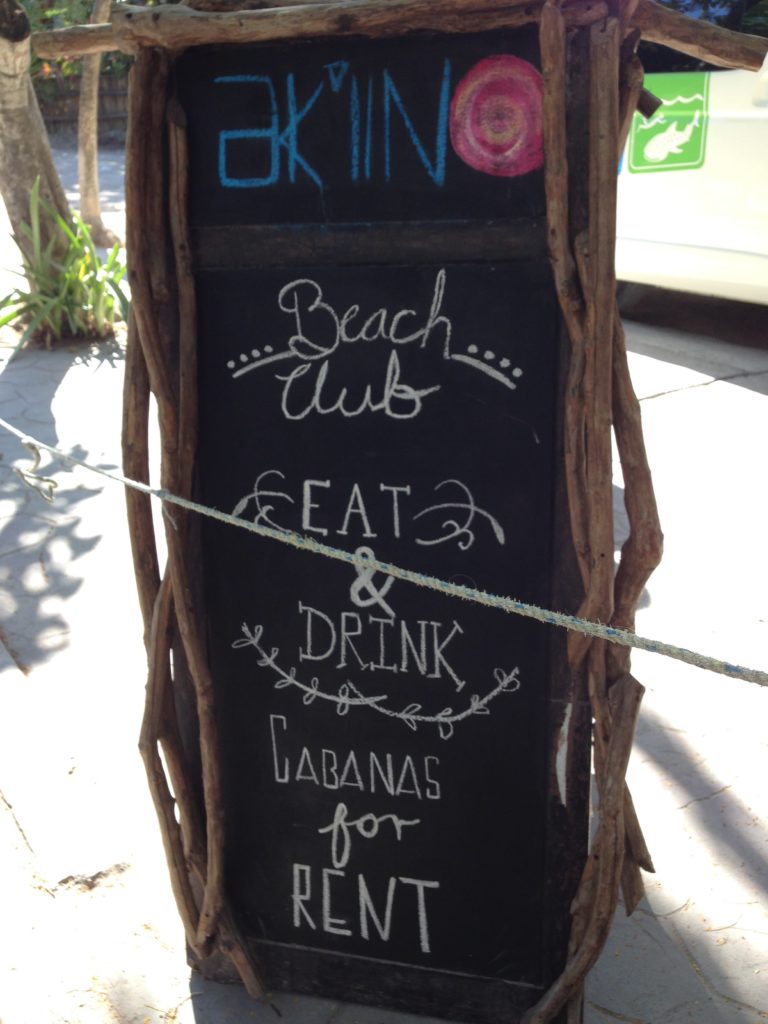 aK'iiN
Beach
Club
EAT
&
DRINK
CABANAS
for
RENT